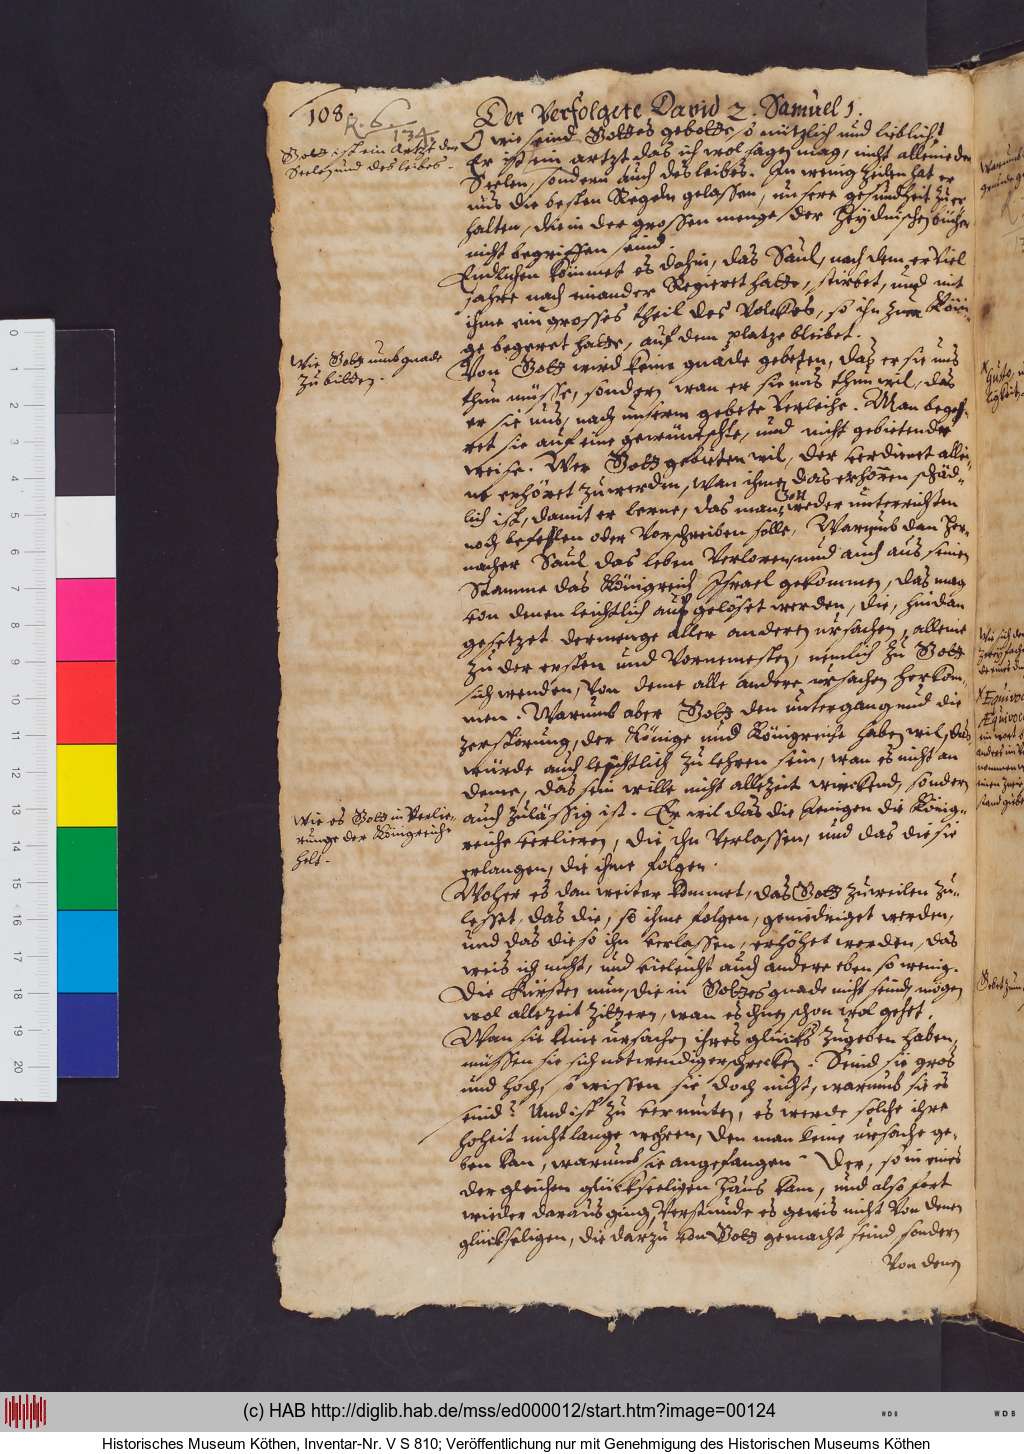 108.
R. 6.
134
Der Verfolgete David 2. Samuel 1.
Gott ist ein Artzt der
Seelen und des leibes.
O wie seind Gottes gebotte, so nützlich und lieblich!
Er ist ein artzt, das ich wol sagen mag, nicht alleine der
Seelen, sondern auch des leibes. In wenig zeilen hat er
uns die besten Regeln gelassen, unsere gesundheit zu er
halten, die in der grossen menge, der Heydnischen bücher
nicht begriffen seind.
Endlichen kommet es dahin, das Saul, nach dem er viel
jahre nach einander Regieret hatte, stirbet, und mit
ihme ein grosses theil des Volckes, so ihn zum Köni-
ge begeret hatte, auf dem platze bleibet.
Wie Gott umb gnade
zu bitten.
Von Gott wird keine gnade gebeten, das er sie uns
thun müsse, sondern, wan er sie uns thun wil, das
er sie uns, nach unserm gebete verleihe. Man begeh-
ret sie auf eine gewünschte, und nicht gebietende
weise. Wer Gott gebieten wil, der verdienet allei-
ne erhöret zu werden, wan ihme das erhören schäd-
lich ist, damit er lerne, das man Gott weder unterrichten
noch befehlen oder vorschreiben solle. Warumb dan her-
nacher Saul das leben verloren, und auch aus seinem
Stamme das Königreich Israel gekommen, das mag
von denen leichtlich aufgelöset werden, die, hindan
gesetzet der menge aller anderen ursachen, alleine
zu der ersten und vornemesten, nemlich zu Gott
sich wenden, von deme alle andere ursachen herkom-
men. Warumb aber Gott den untergang und die
zerstörung, der Könige und Königreiche haben wil, das
würde auch leichtlich zu lehren sein, wan es nicht an
deme, das sein wille nicht allezeit wirckend, sondern
Wie es Gott in verlie-
runge der Königreiche
helt.
auch zulässig ist. Er wil das die jenigen die König-
reiche verlieren, die ihn verlassen, und das die sie
erlangen, die ihme folgen.
Woher es dan weiter kommet, das Gott zuweilen zu-
lesset, das die, so ihme folgen, geniedriget werden,
und das die so ihn verlassen, erhöhet werden, das
weis ich nicht, und vieleicht auch andere eben so wenig.
Die Fürsten nun, die in Gottes gnade nicht seind, mögen
wol allezeit zittern, wan es ihnen schon wol gehet.
Wan sie keine ursachen ihres glücks zugeben haben,
müssen sie sich notwendig erschrecken. Seind sie gros
und hoch, so wissen sie doch nicht, warumb sie es
seind? Und ist zu vermuten, es werde solche ihre
hoheit nicht lange wehren, den man keine ursache ge-
ben kan, warumb sie angefangen. Der, so in eines
dergleichen glückseeligen haus kam, und also fort
wieder daraus ging, verstunde es gewis nicht von denen
glückseligen, die darzu von Gott gemacht seind sondern
von denen
(c) HAB http://diglib.hab.de/mss/ed000012/start.htm?image=00124
Historisches Museum Köthen, Inventar-Nr. V S 810; Veröffentlichung nur mit Genehmigung des Historischen Museums Köthen